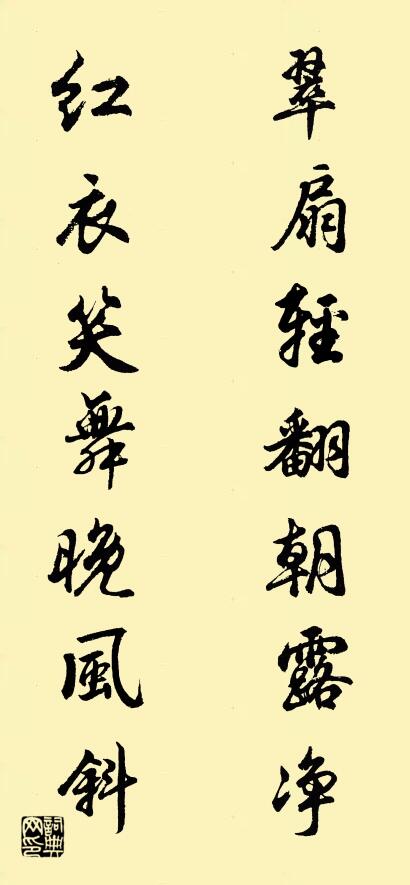 翠扇輕翻朝露净
红衣笑舞晚風斜
詞典网印